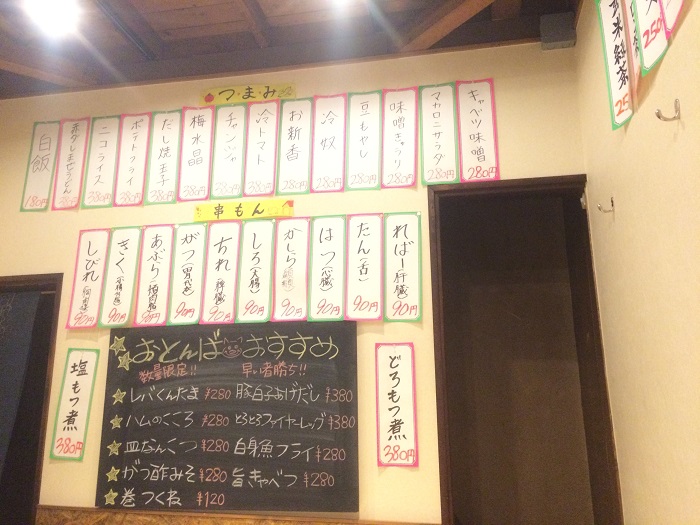 つ・ま・み
キャベツ味噌 280円
マカロニサラダ 280円
味噌きゅうり 280円
豆もやし 280円
冷奴 280円
お新香 280円
冷トマト 380円
チャンジャ 380円
梅水晶 380円
だし焼玉子 380円
ポテトフライ 380円
ニコライス 380円
380円
白飯 180円
串もん
ればー(肝臓) 90円
たん(舌) 90円
はつ(心臓) 90円
かしら 90円
しろ(大腸) 90円
ちれ(脾臓) 90円
がつ(胃袋) 90円
あぶら 90円
きく 90円
しびれ 90円
おとんば おすすめ
数量限定!! 早い者勝ち!!
レバくんたま ¥280 豚白子あげだし ¥380
ハムのこころ ¥280 とろとろファイヤーレッグ ¥380
皿なんこつ ¥280 白身魚フライ ¥280
がつ酢みそ ¥280 旨きゃべつ ¥280
巻つくね ¥120
塩もつ煮 380円
どろもつ煮 380円
玄米紅茶
250